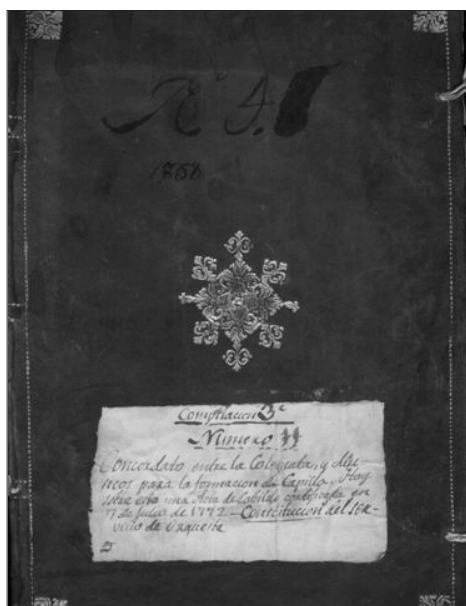 N 4.
1758
Compilacion 3ª
Número 11
Concordato entre la Colegiata, y Mú-
sicos para la formacion de Capilla, Hay
sobre esto una Acta de Cabildo certificada en
7 de Julio de 1772 - Constitucion del ser-
vicio de Orquesta